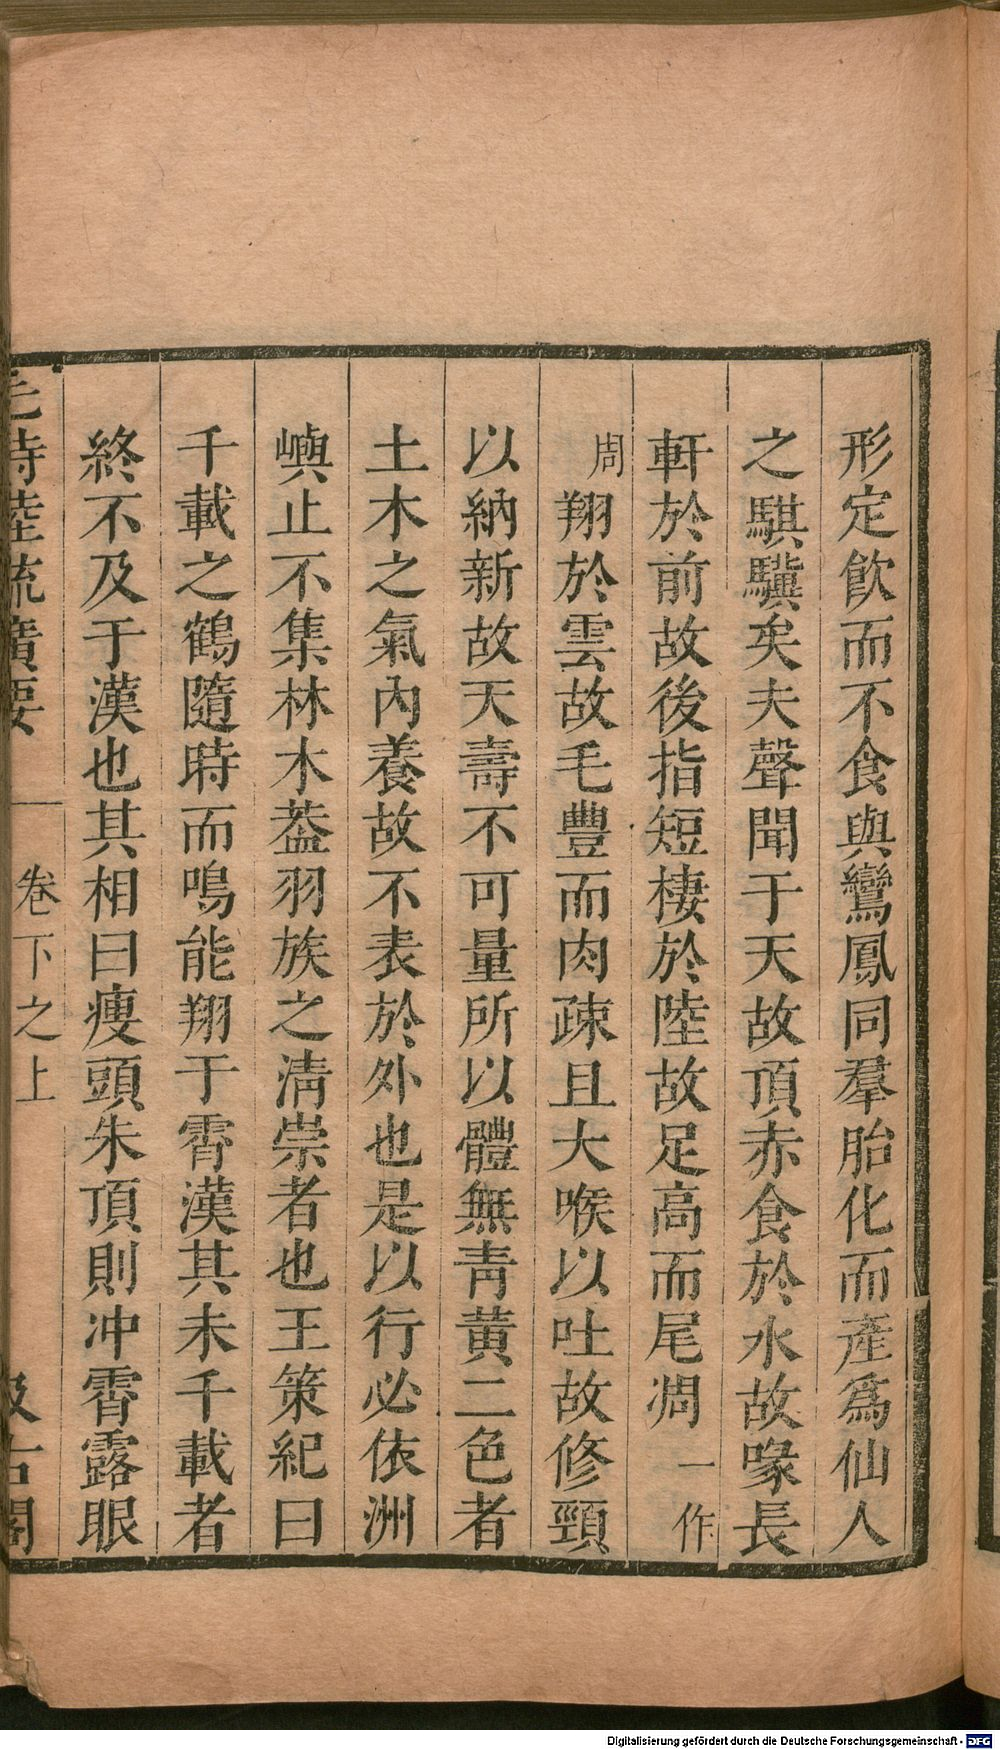 形定飲而不食與鸞鳳同羣胎化而產爲仙人
之騏驥矣夫聲聞于天故頂赤食於水故喙長
軒於前故後指短棲於陸故足高而尾凋一作
周翔於雲故毛豐而肉疎且大喉以吐故修頸
以納新故天壽不可量所以體無靑黃二色者
土木之氣內養故不表於外也是以行必依洲
嶼止不集林木葢羽族之淸崇者也王策紀曰
千載之鶴隨時而鳴能翔于霄漢其未千載者
終不及于漢也其相曰瘦頭朱頂則冲霄露眼
毛詩陸疏廣要
卷下之上
汲古閣
Digitalisierung gefördert durch die Deutsche Forschungsgemeinschaft - DFG